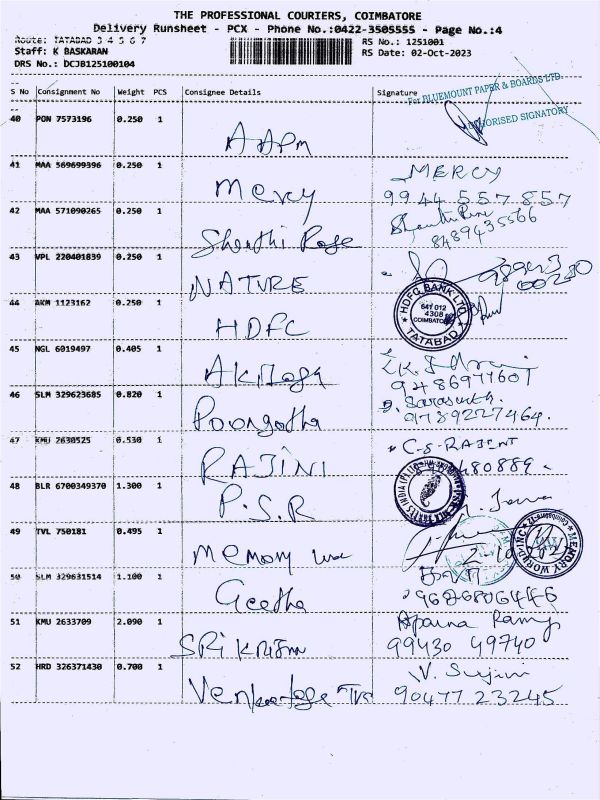 THE PROFESSIONAL COURIERS, COIMBATORE
Delivery Runsheet - PCX - Phone No.:0422-3505555 - Page No.:4
Route: TATABAD 3 4 5 6 7
RS No.: 1251001
Staff: K BASKARAN
RS Date: 02-Oct-2023
DRS No.: DCJB125100104
S No Consignment No Weight PCS Consignee Details Signature
For BLUEMOUNT PAPER & BOARDS LTD.
AUTHORISED SIGNATORY
40 PON 7573196 0.250 1 AAPM
41 MAA 569699396 0.250 1 Mercy MERCY
9944 557 857
42 MAA 571090265 0.250 1 Shanthi Rose
8489435566
43 VPL 220401839 0.250 1 NATURE
44 AKM 1123162 0.250 1 HDFC
HDFC BANK LTD.
641 012
4308
COIMBATORE
TATABAD
45 NGL 6019497 0.405 1
9486977601
46 SLM 329623685 0.820 1 Poongotha
9789227464.
47 KMU 2630525 0.530 1 RAJINI C-S-RAJENT
480889
48 BLR 6700349370 1.300 1 P.S.R
49 TVL 750181 0.495 1 Memory
MEMORY WORLD-INC
Coimbatore-12
50 SLM 329631514 1.100 1 Geetha
9626806446
51 KMU 2633709 2.090 1 SRi Aparna Ramji
99430 49740
52 HRD 326371430 0.700 1 V. Sujini
90477 23245